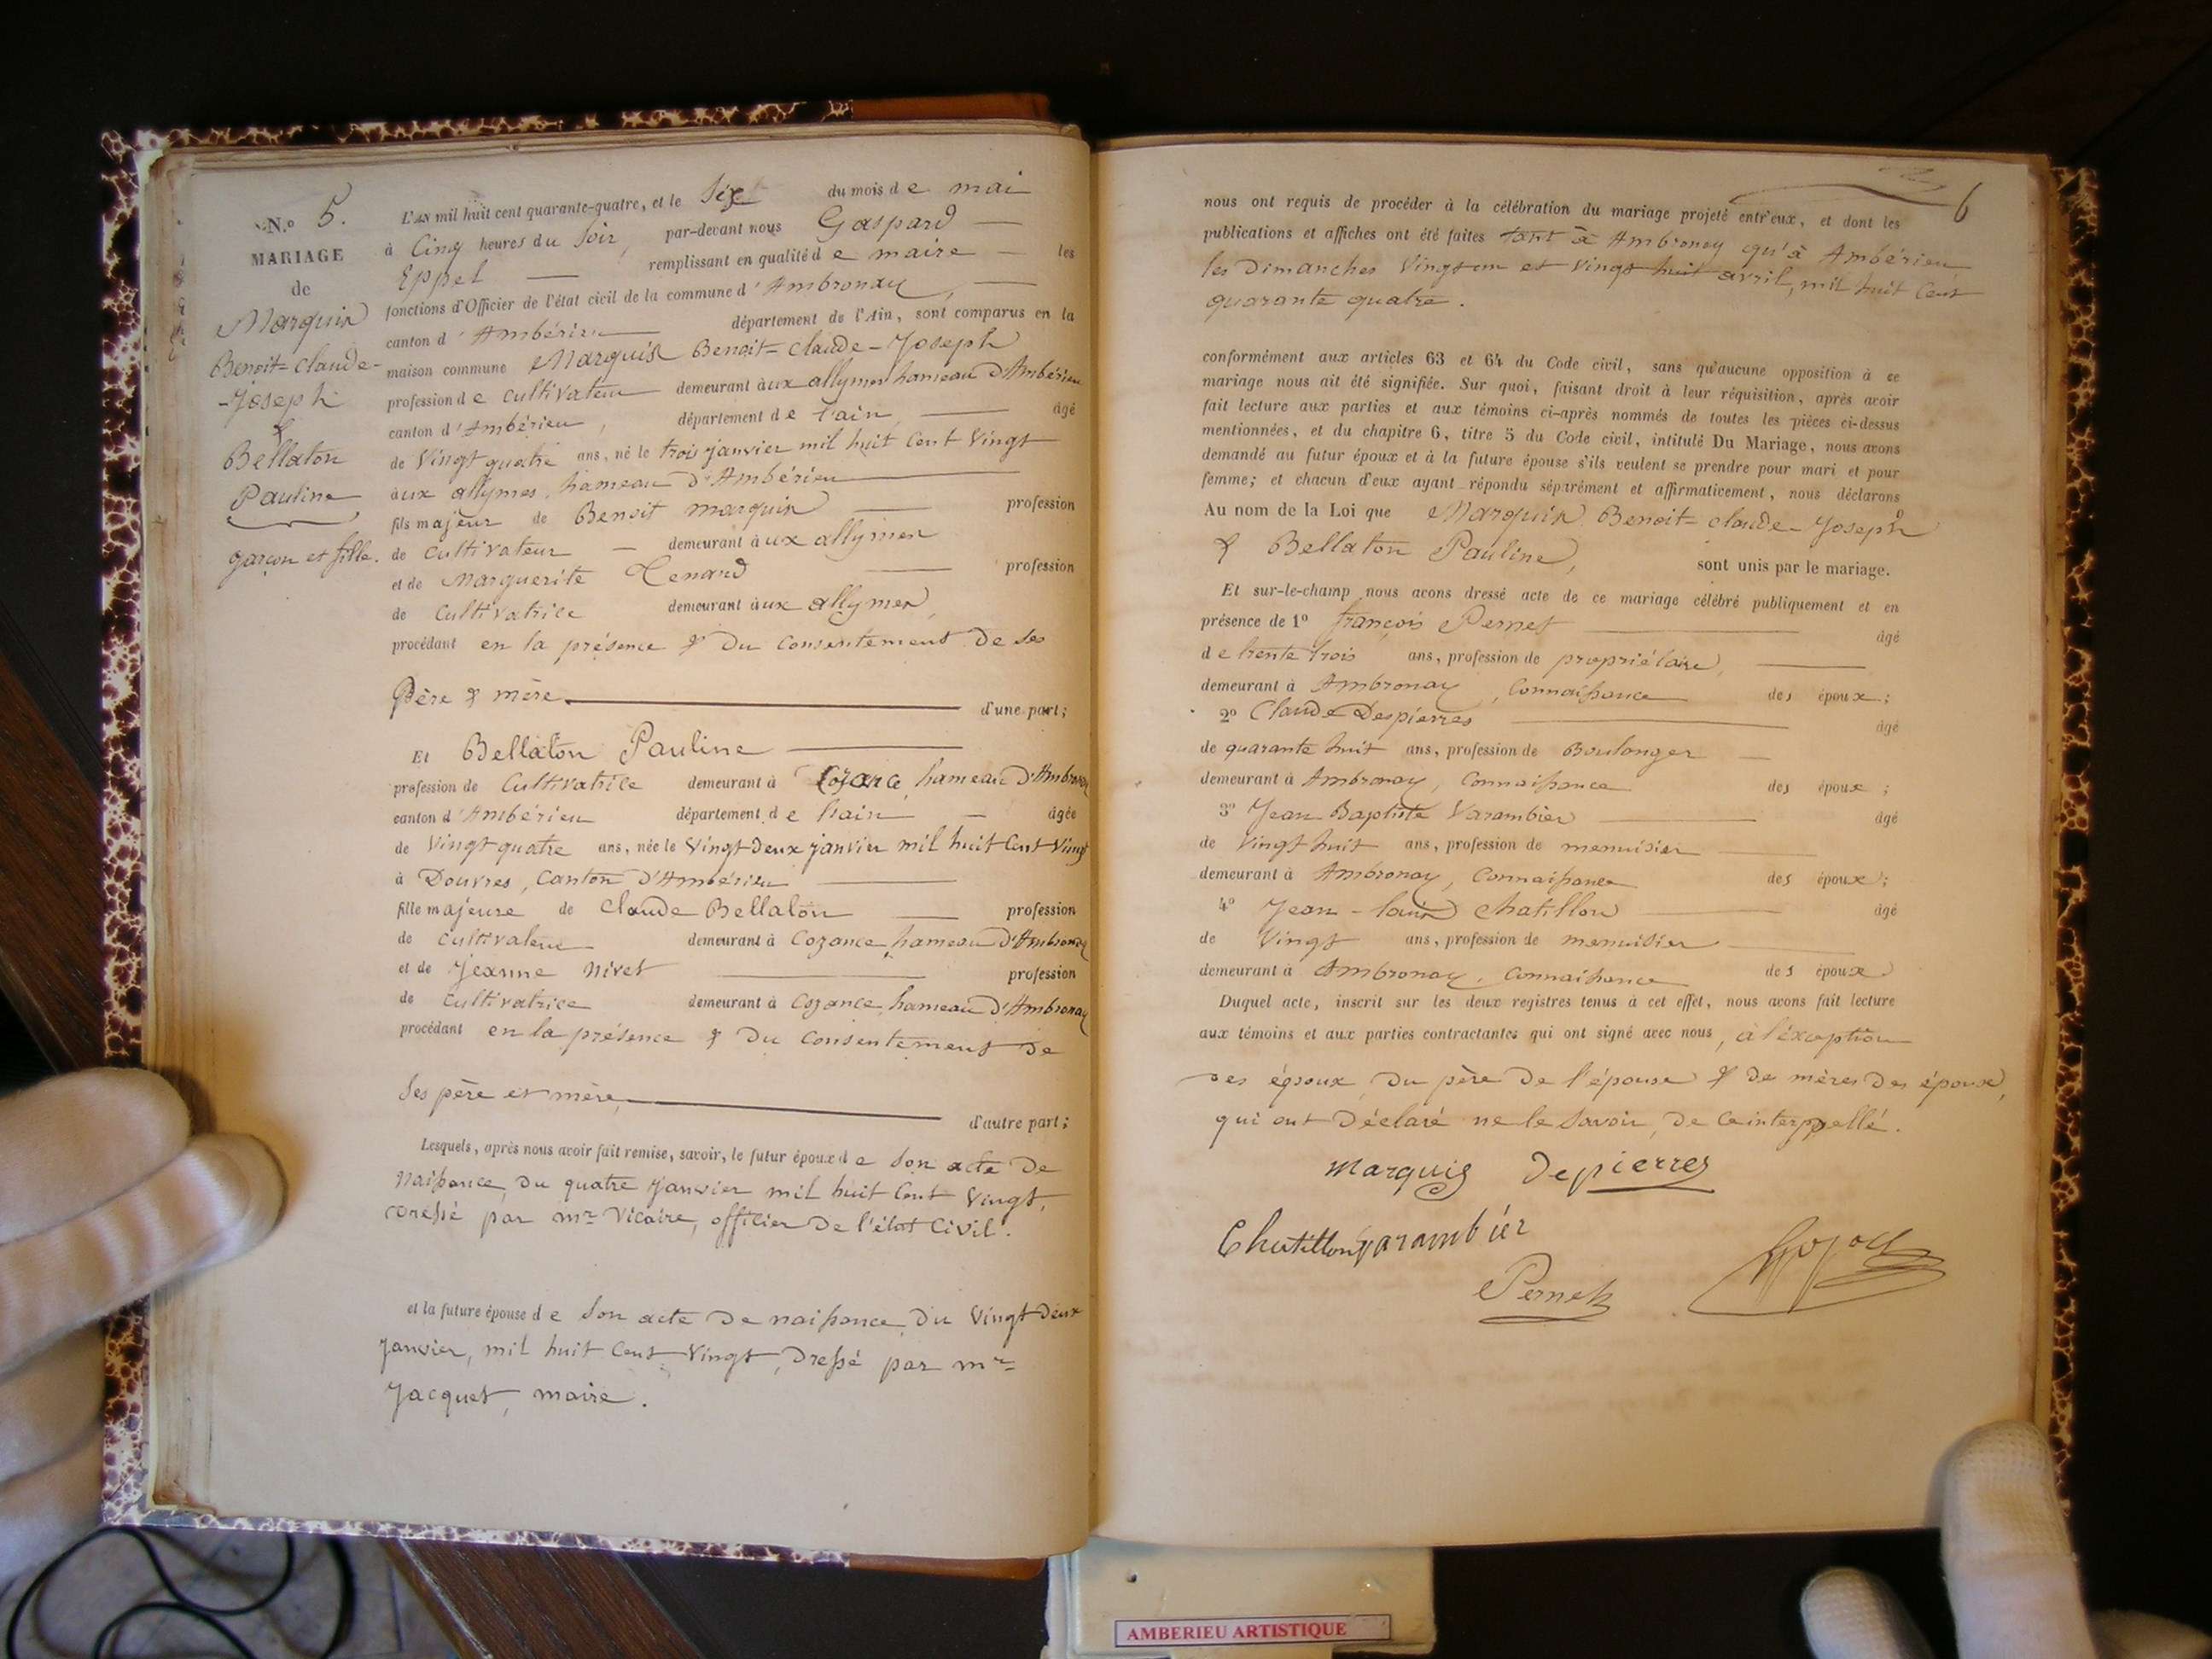 N.º 5.
MARIAGE
de
Marquis
Benoit=Claude-
-Joseph
&
Bellaton
Pauline
garçon et fille.
L'AN mil huit cent quarante-quatre, et le Six du mois de mai
à Cinq heures du Soir, par-devant nous Gaspard
Eppel remplissant en qualité de maire les
fonctions d'Officier de l'état civil de la commune d'Ambronay,
canton d'Ambérieu département de l'Ain, sont comparus en la
maison commune Marquis Benoit=Claude-Joseph
profession de cultivateur demeurant aux allymes hameau d'Ambérieu
canton d'Ambérieu, département de l'ain, âgé
de Vingt quatre ans, né le trois janvier mil huit Cent Vingt
aux allymes, hameau d'Ambérieu
fils majeur de Benoit marquis profession
de cultivateur demeurant aux allymes
et de Marguerite Lenard profession
de Cultivatrice demeurant aux allymes,
procédant en la présence & du Consentement de ses
Père & mère. d'une part;
Et Bellaton Pauline
profession de Cultivatrice demeurant à Cozance, hameau d'Ambronay
canton d'Ambérieu département de l'ain âgée
de Vingt quatre ans, née le Vingt Deux janvier mil huit Cent Vingt
à Douvres, Canton d'Ambérieu
fille majeure de Claude Bellaton profession
de cultivateur demeurant à Cozance, hameau d'Ambronay
et de Jeanne Nivet profession
de Cultivatrice demeurant à Cozance, hameau d'Ambronay
procédant en la présence & du Consentement de
Ses père et mère, d'autre part;
Lesquels, après nous avoir fait remise, savoir, le futur époux de Son acte de
Naissance, du quatre Janvier mil huit Cent Vingt,
par mr Vicaire, officier de l'état Civil.
et la future épouse de Son acte de naissance, du Vingt Deux
Janvier, mil huit Cent Vingt, Dressé par mr
Jacquet, maire.
6
nous ont requis de procéder à la célébration du mariage projeté entr'eux, et dont les
publications et affiches ont été faites tant à Ambronay qu'à Ambérieu,
les Dimanches Vingt un et Vingt huit avril, mil huit Cent
quarante quatre.
conformément aux articles 63 et 64 du Code civil, sans qu'aucune opposition à ce
mariage nous ait été signifiée. Sur quoi, faisant droit à leur réquisition, après avoir
fait lecture aux parties et aux témoins ci-après nommés de toutes les pièces ci-dessus
mentionnées, et du chapitre 6, titre 5 du Code civil, intitulé Du Mariage, nous avons
demandé au futur époux et à la future épouse s'ils veulent se prendre pour mari et pour
femme; et chacun d'eux ayant répondu séparément et affirmativement, nous déclarons
Au nom de la Loi que Marquis Benoit=Claude-Joseph
& Bellaton Pauline, sont unis par le mariage.
Et sur-le-champ nous avons dressé acte de ce mariage célébré publiquement et en
présence de 1º françois Pernet âgé
de trente trois ans, profession de propriétaire,
demeurant à Ambronay, Connaissance des époux;
2º Claude Despierres âgé
de quarante huit ans, profession de Boulanger
demeurant à Ambronay, Connaissance des époux;
3º Jean Baptiste Varambier âgé
de Vingt huit ans, profession de menuisier
demeurant à Ambronay, Connaissance des époux;
4º Jean-louis Chatillon âgé
de Vingt ans, profession de menuisier
demeurant à Ambronay, Connaissance des époux
Duquel acte, inscrit sur les deux registres tenus à cet effet, nous avons fait lecture
aux témoins et aux parties contractantes qui ont signé avec nous, à l'éxception
des époux, du père de l'épouse & de mères des époux,
qui ont Déclaré ne le Savoir, de ce interppellé.
marquis Depierres
Chatillon varambier
Pernet
AMBERIEU ARTISTIQUE